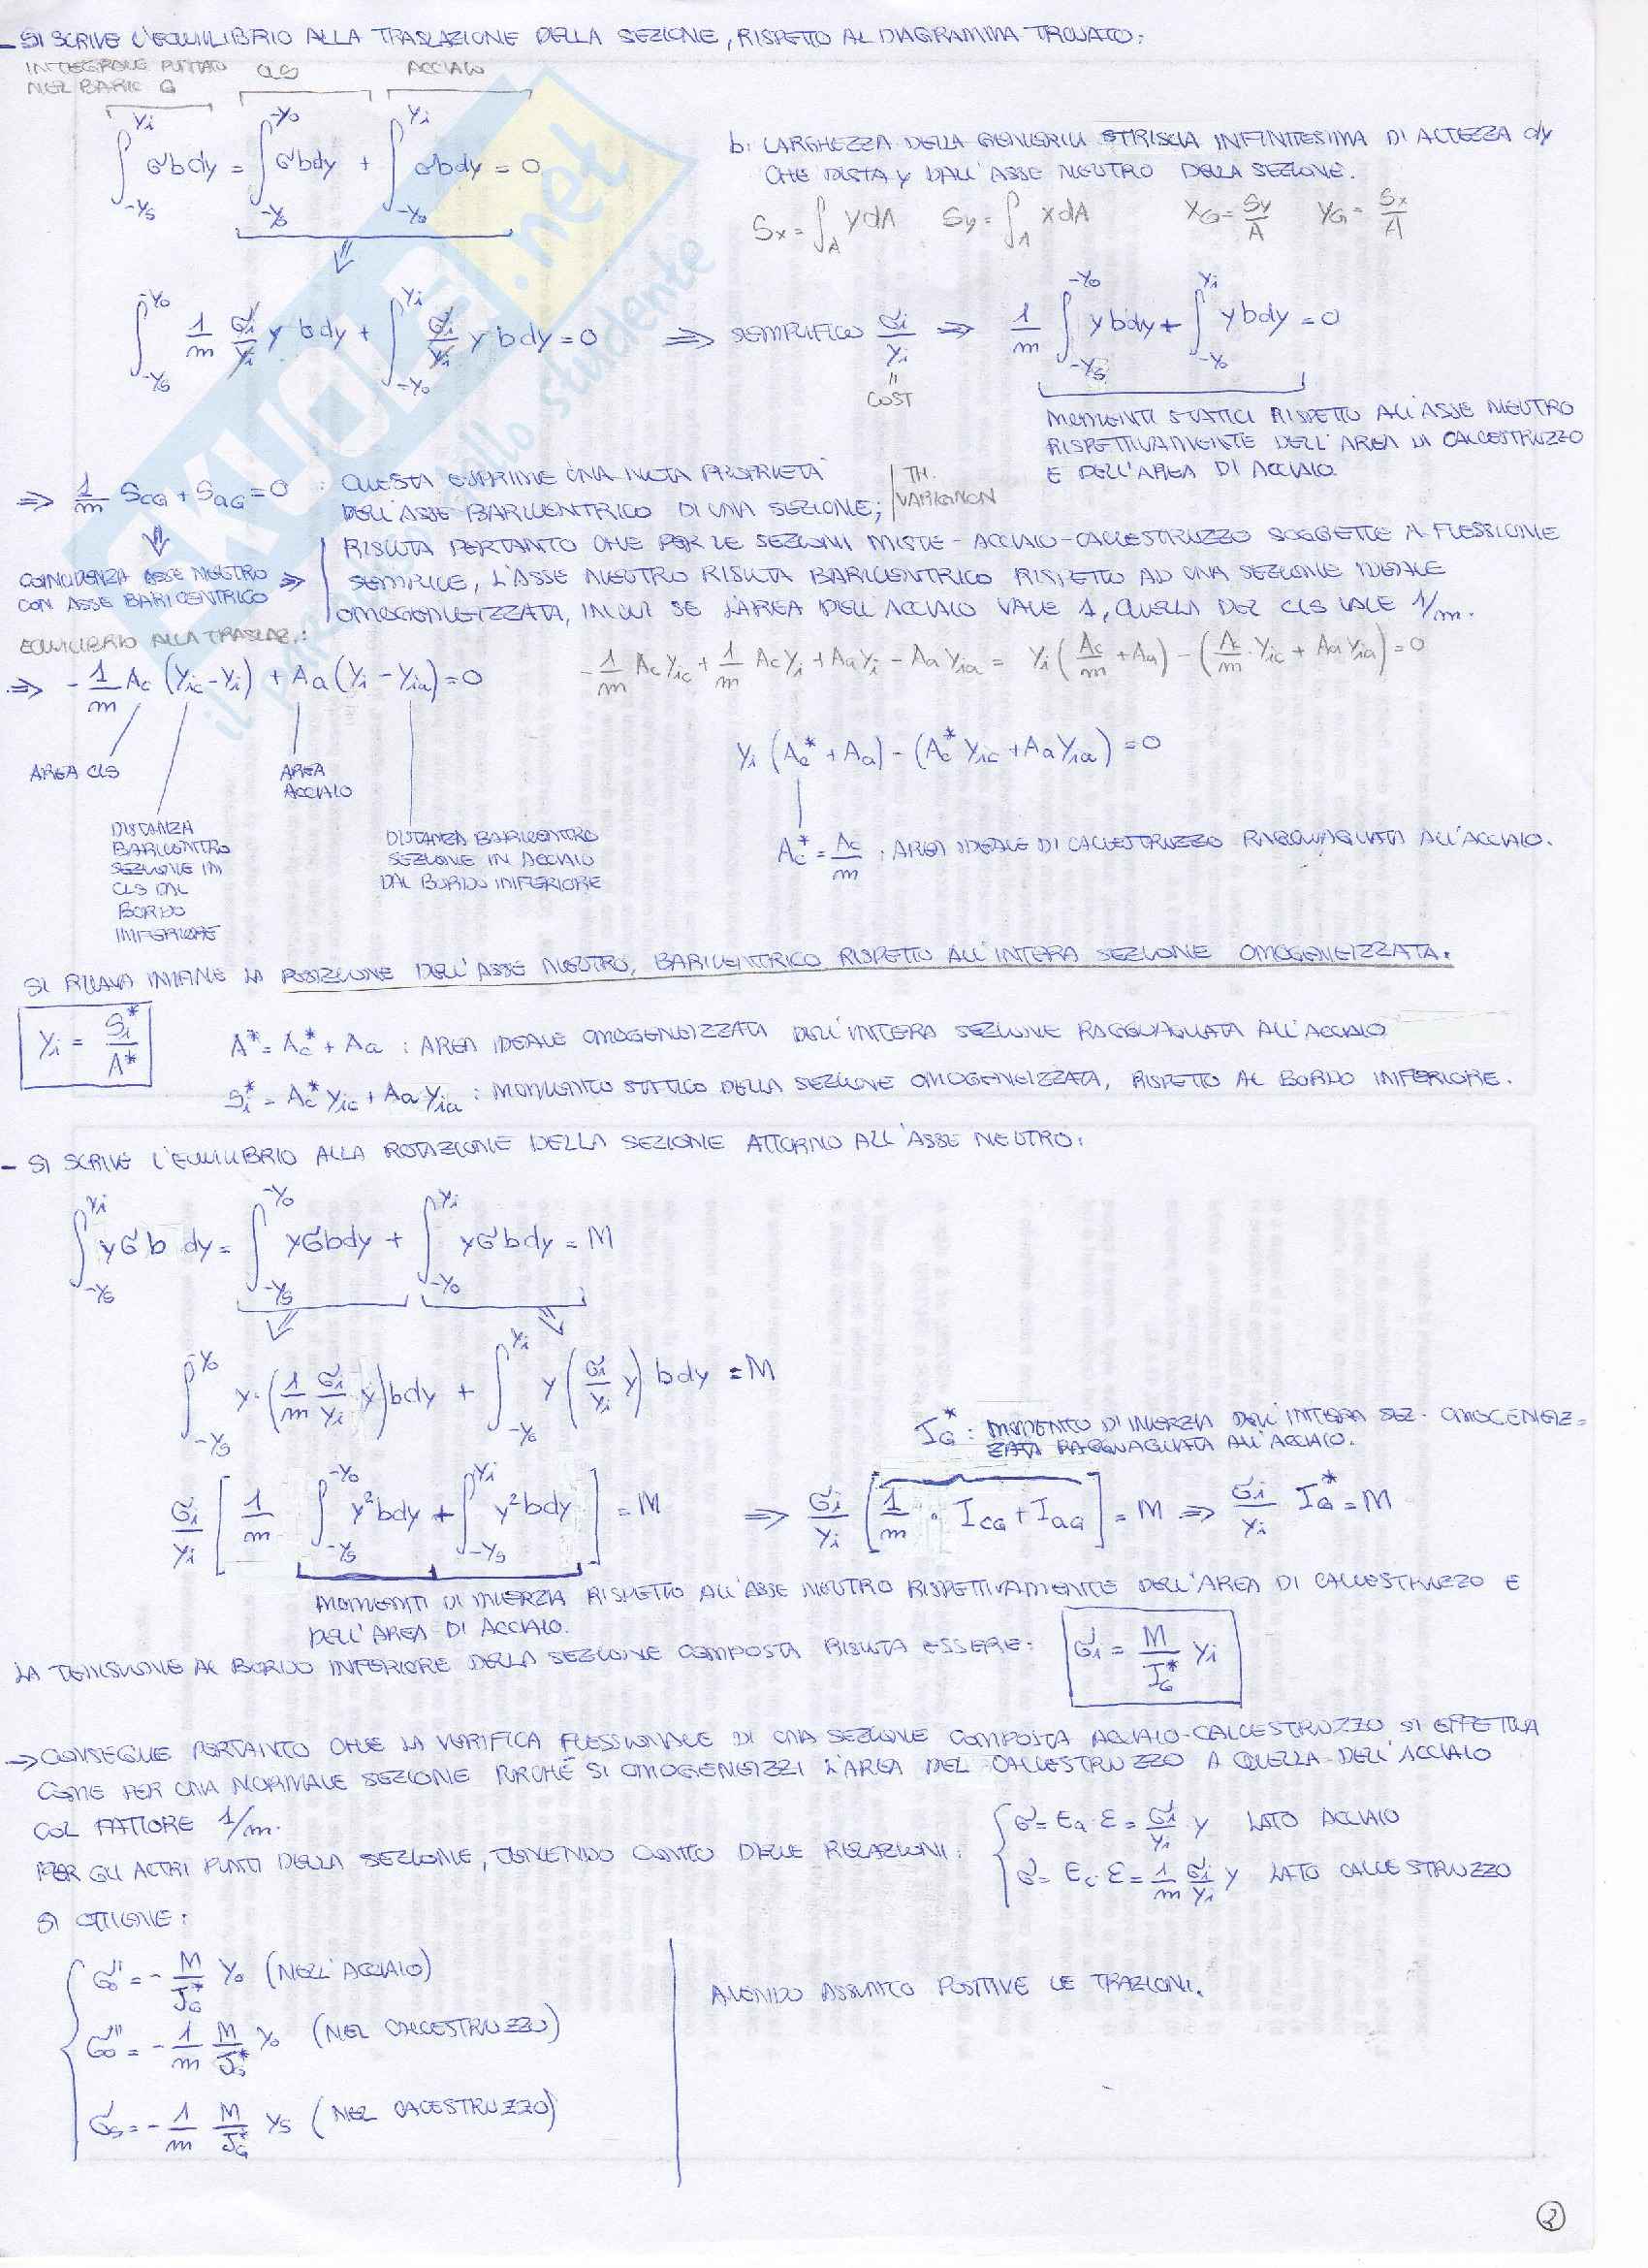 - SI SCRIVE L'EQUILIBRIO ALLA TRASLAZIONE DELLA SEZIONE, RISPETTO AL DIAGRAMMA TROVATO:
INTEGRALE PUNTATO NEL BARIC G
CLS
ACCIAIO
∫_{-ys}^{yi} σ b dy = ∫_{-ys}^{-y0} σ b dy + ∫_{-y0}^{yi} σ b dy = 0
b: LARGHEZZA DELLA GENERICA STRISCIA INFINITESIMA DI ALTEZZA dy
CHE DISTA y DALL'ASSE NEUTRO DELLA SEZIONE.
Sx = ∫_A y dA   Sy = ∫_A x dA   xG = Sy/A   yG = Sx/A
∫_{-ys}^{-y0} 1/m σi/yi y b dy + ∫_{-y0}^{yi} σi/yi y b dy = 0 ⇒ SEMPLIFICO σi/yi ⇒ 1/m ∫_{-ys}^{-y0} y b dy + ∫_{-y0}^{yi} y b dy = 0
"
COST
MOMENTI STATICI RISPETTO ALL'ASSE NEUTRO
RISPETTIVAMENTE DELL'AREA DI CALCESTRUZZO
E DELL'AREA DI ACCIAIO.
⇒ 1/m ScG + SaG = 0 : QUESTA ESPRIME UNA NOTA PROPRIETA'
DELL'ASSE BARICENTRICO DI UNA SEZIONE;
TH. VARIGNON
COINCIDENZA ASSE NEUTRO
CON ASSE BARICENTRICO
⇒ RISULTA PERTANTO CHE PER LE SEZIONI MISTE-ACCIAIO-CALCESTRUZZO SOGGETTE A FLESSIONE
SEMPLICE, L'ASSE NEUTRO RISULTA BARICENTRICO RISPETTO AD UNA SEZIONE IDEALE
OMOGENEIZZATA, IN CUI SE L'AREA DELL'ACCIAIO VALE 1, QUELLA DEL CLS VALE 1/m.
EQUILIBRIO ALLA TRASLAZ.:
⇒ - 1/m Ac (yic - yi) + Aa (yi - yia) = 0
- 1/m Ac yic + 1/m Ac yi + Aa yi - Aa yia = yi (Ac/m + Aa) - (Ac/m · yic + Aa yia) = 0
yi (Ac* + Aa) - (Ac* yic + Aa yia) = 0
AREA CLS
AREA ACCIAIO
DISTANZA BARICENTRO SEZIONE IN CLS DAL BORDO INFERIORE
DISTANZA BARICENTRO
SEZIONE IN ACCIAIO
DAL BORDO INFERIORE
Ac* = Ac/m : AREA IDEALE DI CALCESTRUZZO RAGGUAGLIATA ALL'ACCIAIO.
SI RICAVA INFINE LA POSIZIONE DELL'ASSE NEUTRO, BARICENTRICO RISPETTO ALL'INTERA SEZIONE OMOGENEIZZATA:
yi = Si*/A*
A* = Ac* + Aa : AREA IDEALE OMOGENEIZZATA DELL'INTERA SEZIONE RAGGUAGLIATA ALL'ACCIAIO
Si* = Ac* yic + Aa yia : MOMENTO STATICO DELLA SEZIONE OMOGENEIZZATA, RISPETTO AL BORDO INFERIORE.
- SI SCRIVE L'EQUILIBRIO ALLA ROTAZIONE DELLA SEZIONE ATTORNO ALL'ASSE NEUTRO:
∫_{-ys}^{yi} y σ b dy = ∫_{-ys}^{-y0} y σ b dy + ∫_{-y0}^{yi} y σ b dy = M
∫_{-ys}^{-y0} y · (1/m σi/yi y) b dy + ∫_{-y0}^{yi} y (σi/yi y) b dy = M
IG* : MOMENTO DI INERZIA DELL'INTERA SEZ. OMOGENEIZ=
ZATA RAGGUAGLIATA ALL'ACCIAIO.
σi/yi [1/m ∫_{-ys}^{-y0} y² b dy + ∫_{-ys}^{yi} y² b dy] = M ⇒ σi/yi [1/m · IcG + IaG] = M ⇒ σi/yi IG* = M
MOMENTI DI INERZIA RISPETTO ALL'ASSE NEUTRO RISPETTIVAMENTE DELL'AREA DI CALCESTRUZZO E
DELL'AREA DI ACCIAIO.
LA TENSIONE AL BORDO INFERIORE DELLA SEZIONE COMPOSTA RISULTA ESSERE: σi = M/IG* yi
→ CONSEGUE PERTANTO CHE LA VERIFICA FLESSIONALE DI UNA SEZIONE COMPOSTA ACCIAIO-CALCESTRUZZO SI EFFETTUA
COME PER UNA NORMALE SEZIONE PURCHÉ SI OMOGENEIZZI L'AREA DEL CALCESTRUZZO A QUELLA DELL'ACCIAIO
COL FATTORE 1/m.
PER GLI ALTRI PUNTI DELLA SEZIONE, TENENDO CONTO DELLE RELAZIONI:
σ = Ea · ε = σi/yi y LATO ACCIAIO
σ = Ec · ε = 1/m σi/yi y LATO CALCESTRUZZO
SI OTTIENE:
σ0' = - M/JG* y0 (NELL'ACCIAIO)
σ0'' = - 1/m M/JG* y0 (NEL CALCESTRUZZO)
σs = - 1/m M/JG* ys (NEL CALCESTRUZZO)
AVENDO ASSUNTO POSITIVE LE TRAZIONI.
2
SKUOLA.net